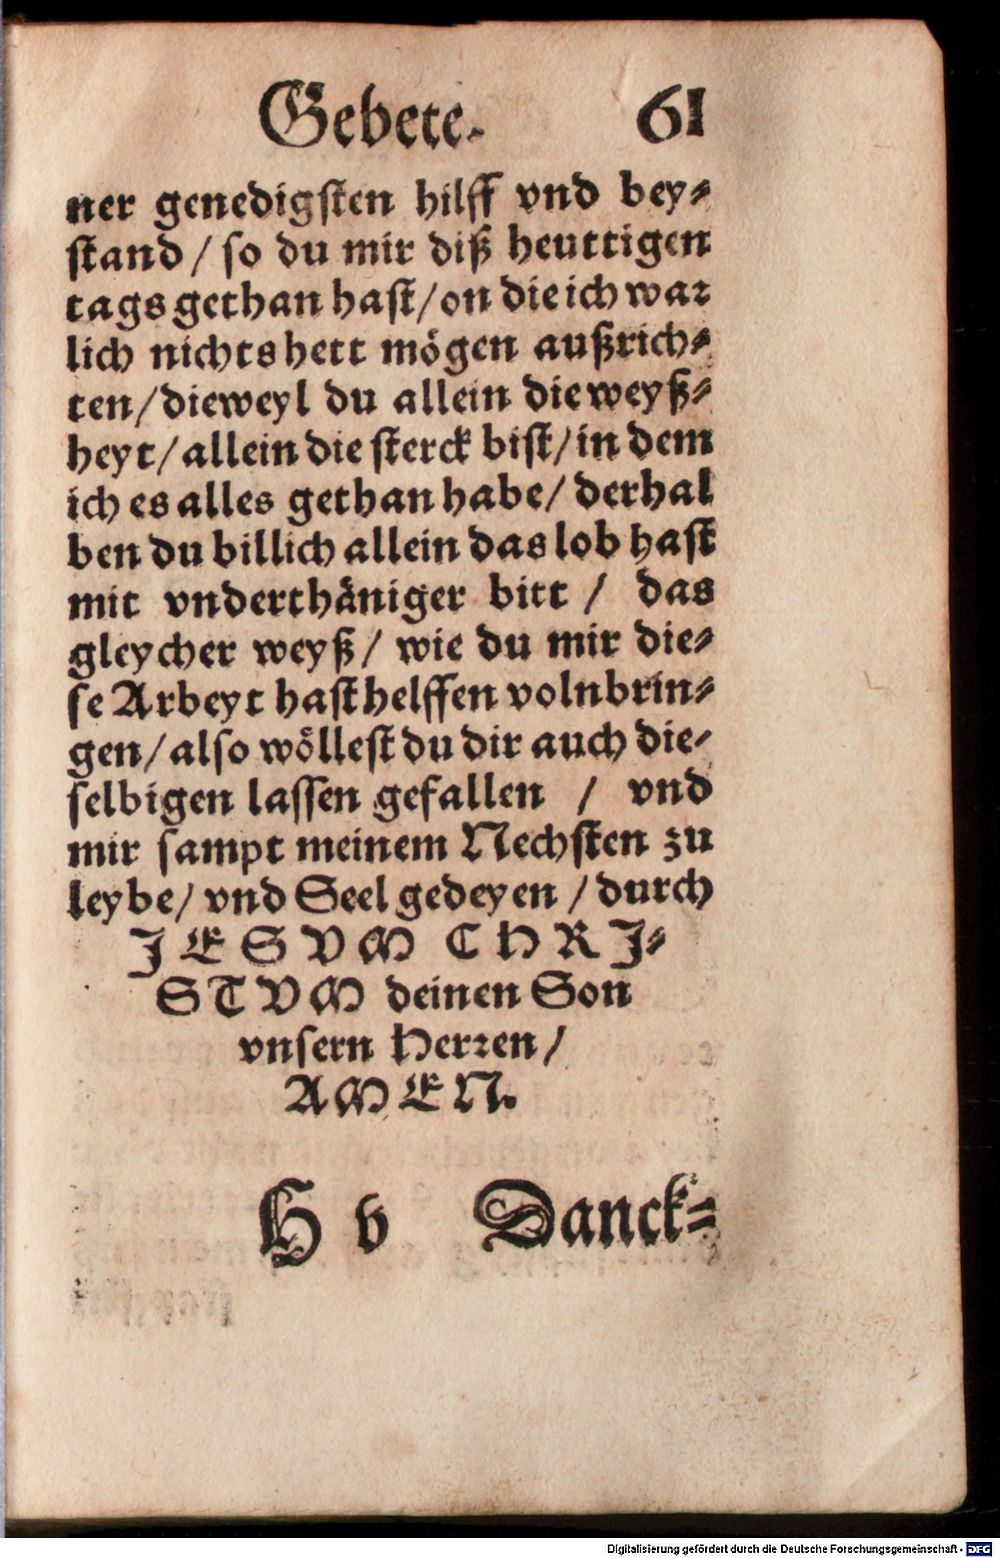 Gebete. 61
ner genedigsten hilff vnd bey⸗
stand / so du mir diß heuttigen
tags gethan hast / on die ich war
lich nichts hett mögen außrich⸗
ten / dieweyl du allein die weyß⸗
heyt / allein die sterck bist / in dem
ich es alles gethan habe / derhal
ben du billich allein das lob hast
mit vnderthäniger bitt / das
gleycher weyß / wie du mir die⸗
se Arbeyt hast helffen volnbrin⸗
gen / also wöllest du dir auch die⸗
selbigen lassen gefallen / vnd
mir sampt meinem Nechsten zu
leybe / vnd Seel gedeyen / durch
JESVM CHRJ⸗
STVM deinen Son
vnsern Herren /
AMEN.
H v Danck⸗
Digitalisierung gefördert durch die Deutsche Forschungsgemeinschaft - DFG